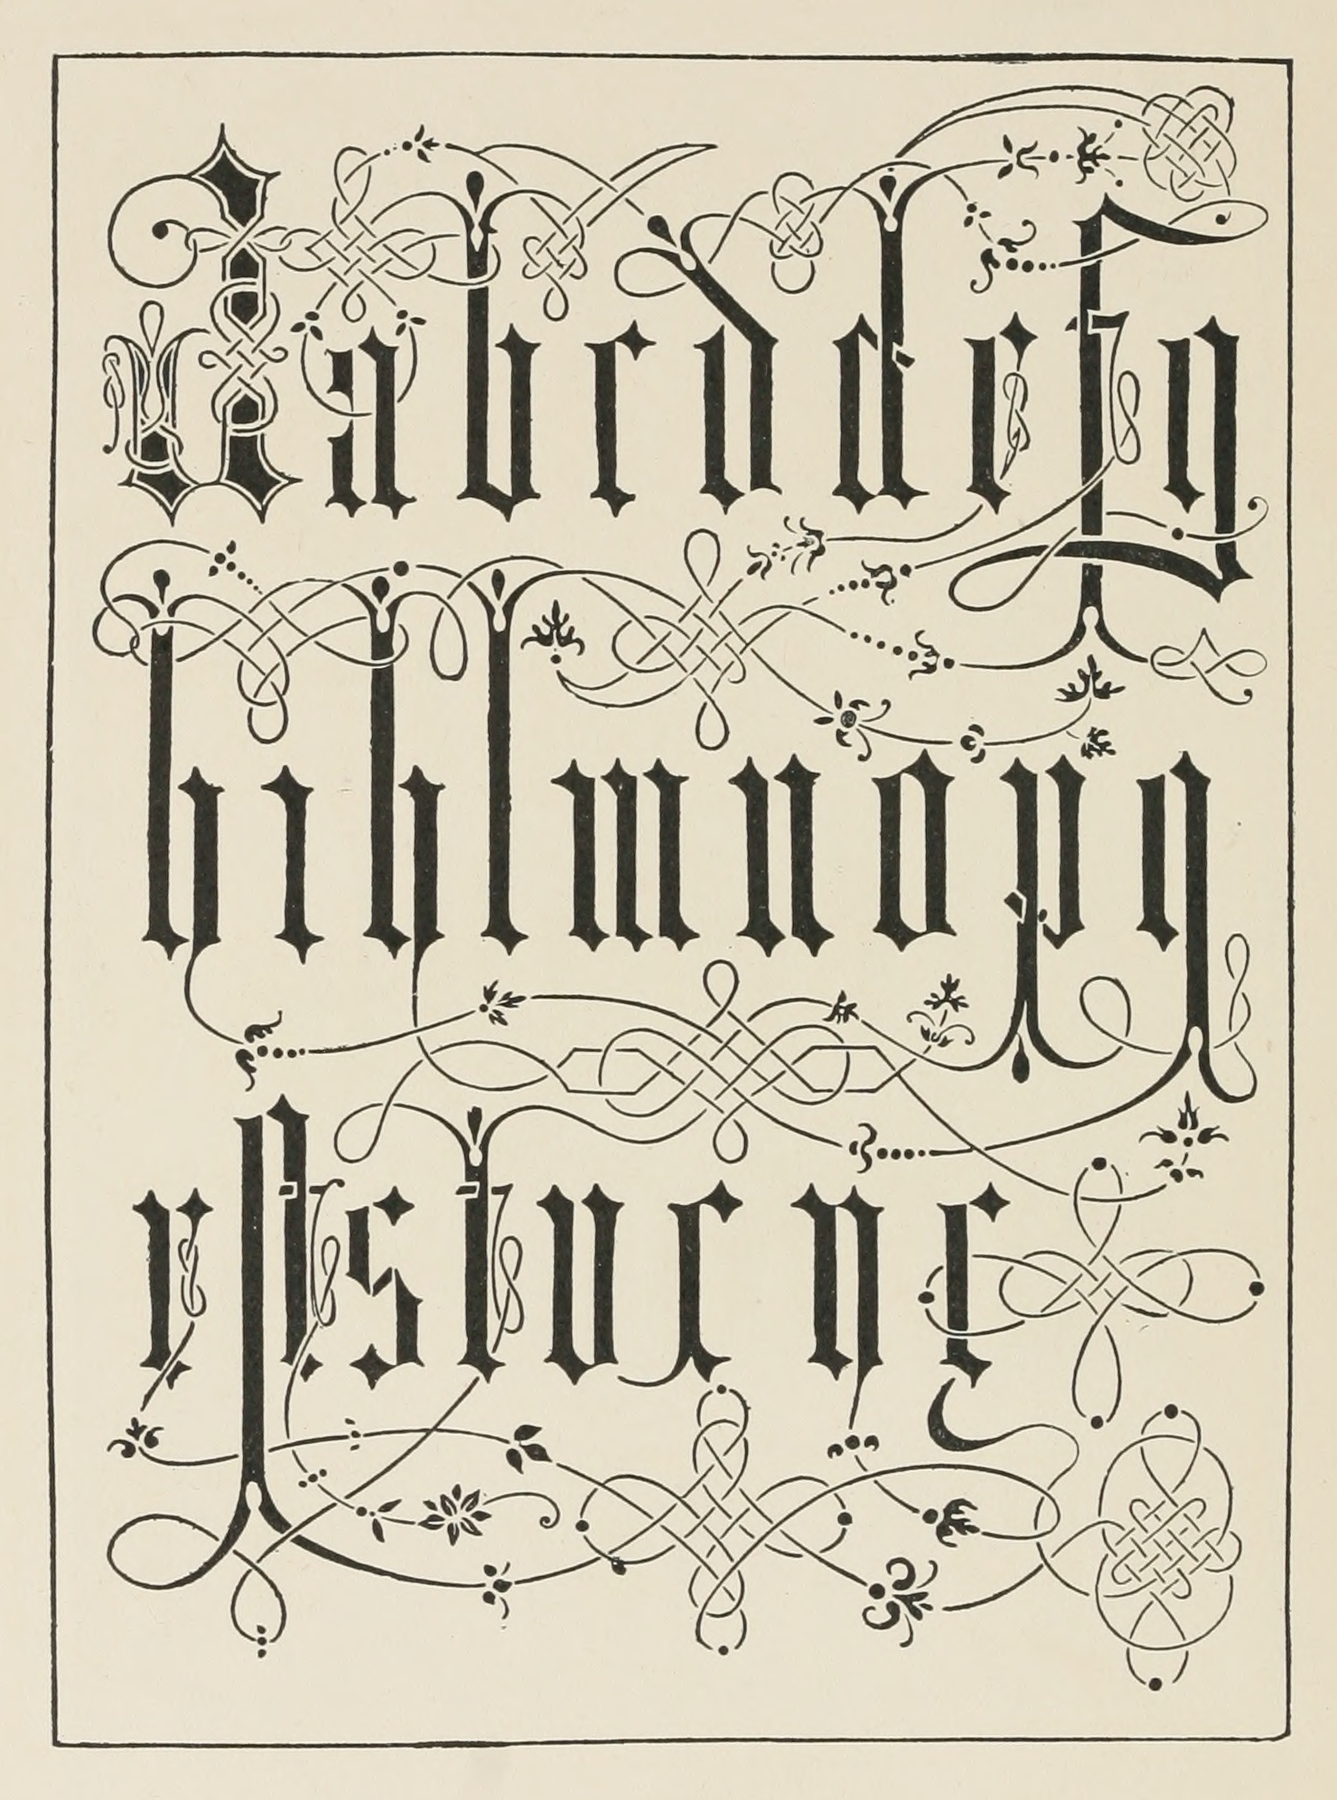 A a b c d d e f g
h i k l m n o p q
r ſt s t v x y z